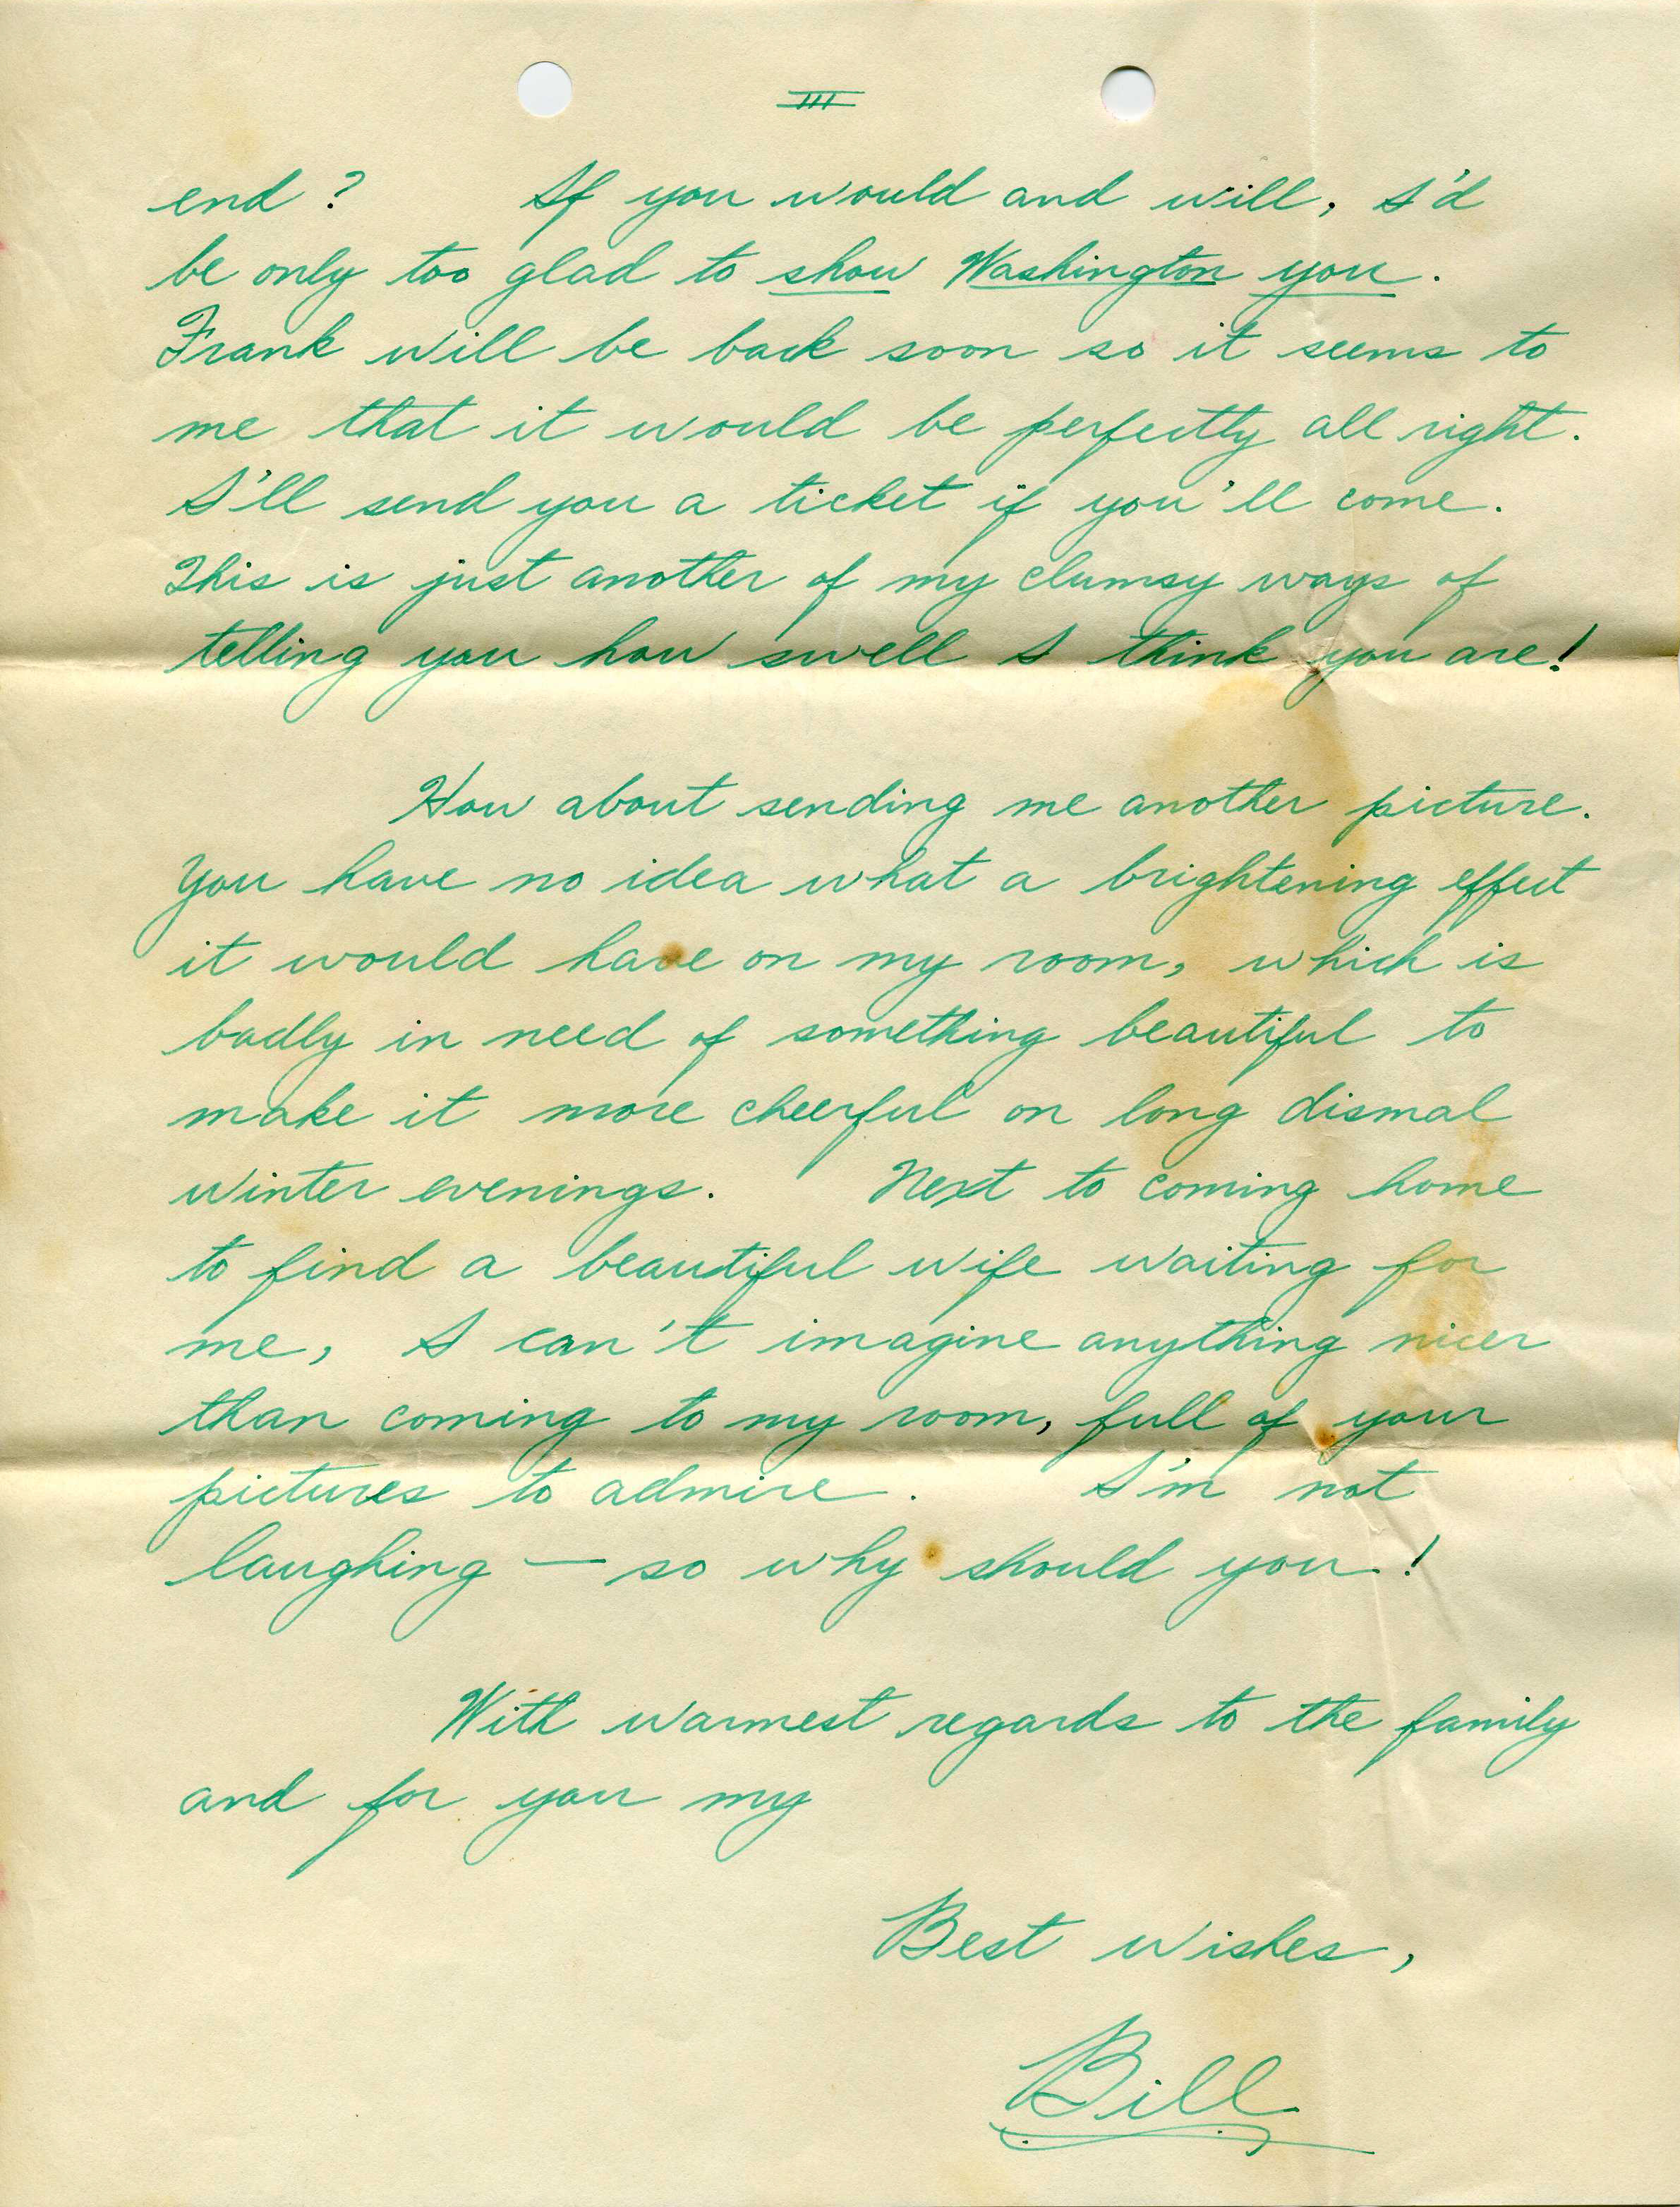 III
end? If you would and will, I'd
be only too glad to show Washington you.
Frank will be back soon so it seems to
me that it would be perfectly all right.
I'll send you a ticket if you'll come.
This is just another of my clumsy ways of
telling you how swell I think you are!
How about sending me another picture.
You have no idea what a brightening effect
it would have on my room, which is
badly in need of something beautiful to
make it more cheerful on long dismal
winter evenings. Next to coming home
to find a beautiful wife waiting for
me, I can't imagine anything nicer
than coming to my room, full of your
pictures to admire. I'm not
laughing — so why should you!
With warmest regards to the family
and for you my
Best wishes,
Bill